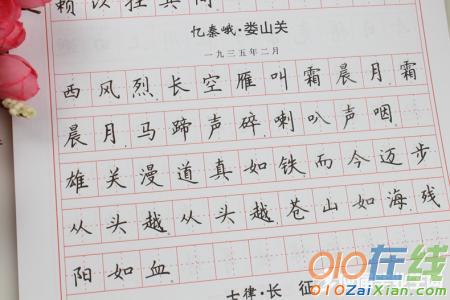 赖以拄其间
忆秦娥·娄山关
一九三五年二月
西风烈,长空雁叫霜晨月.霜
晨月,马蹄声碎,喇叭声咽.
雄关漫道真如铁,而今迈步
从头越.从头越,苍山如海,残
阳如血.
010在线
010ZaiXian.com
七律·长 征